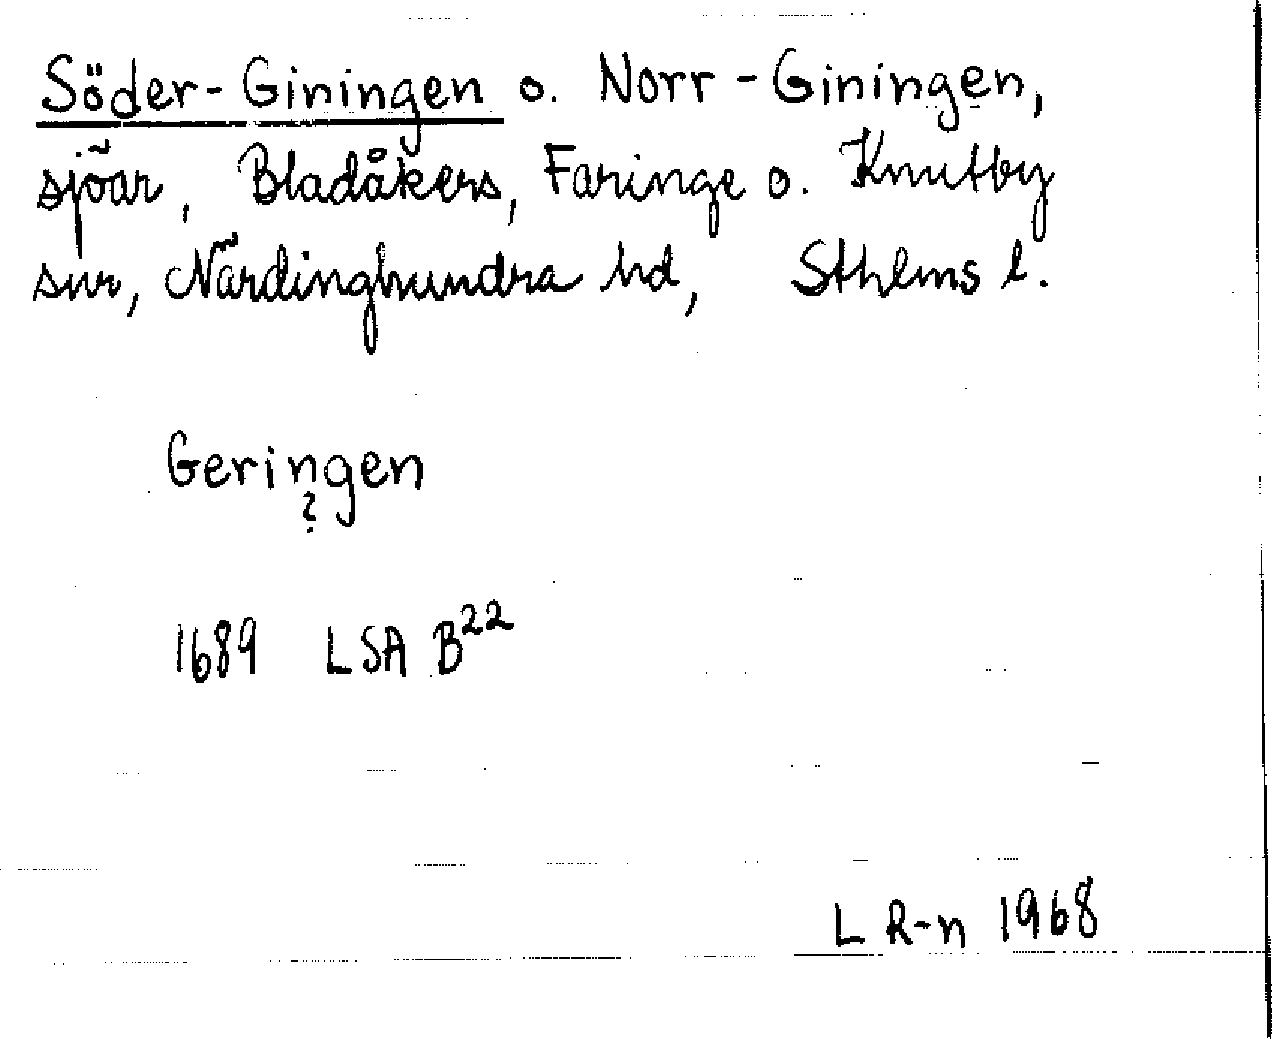 Söder-Giningen o. Norr-Giningen,
sjöar, Bladåkers, Faringe o. Knutby
snr, Närdinghundra hd, Sthlms l.
Geringen
?
1689 LSA B²²
L R-n 1968